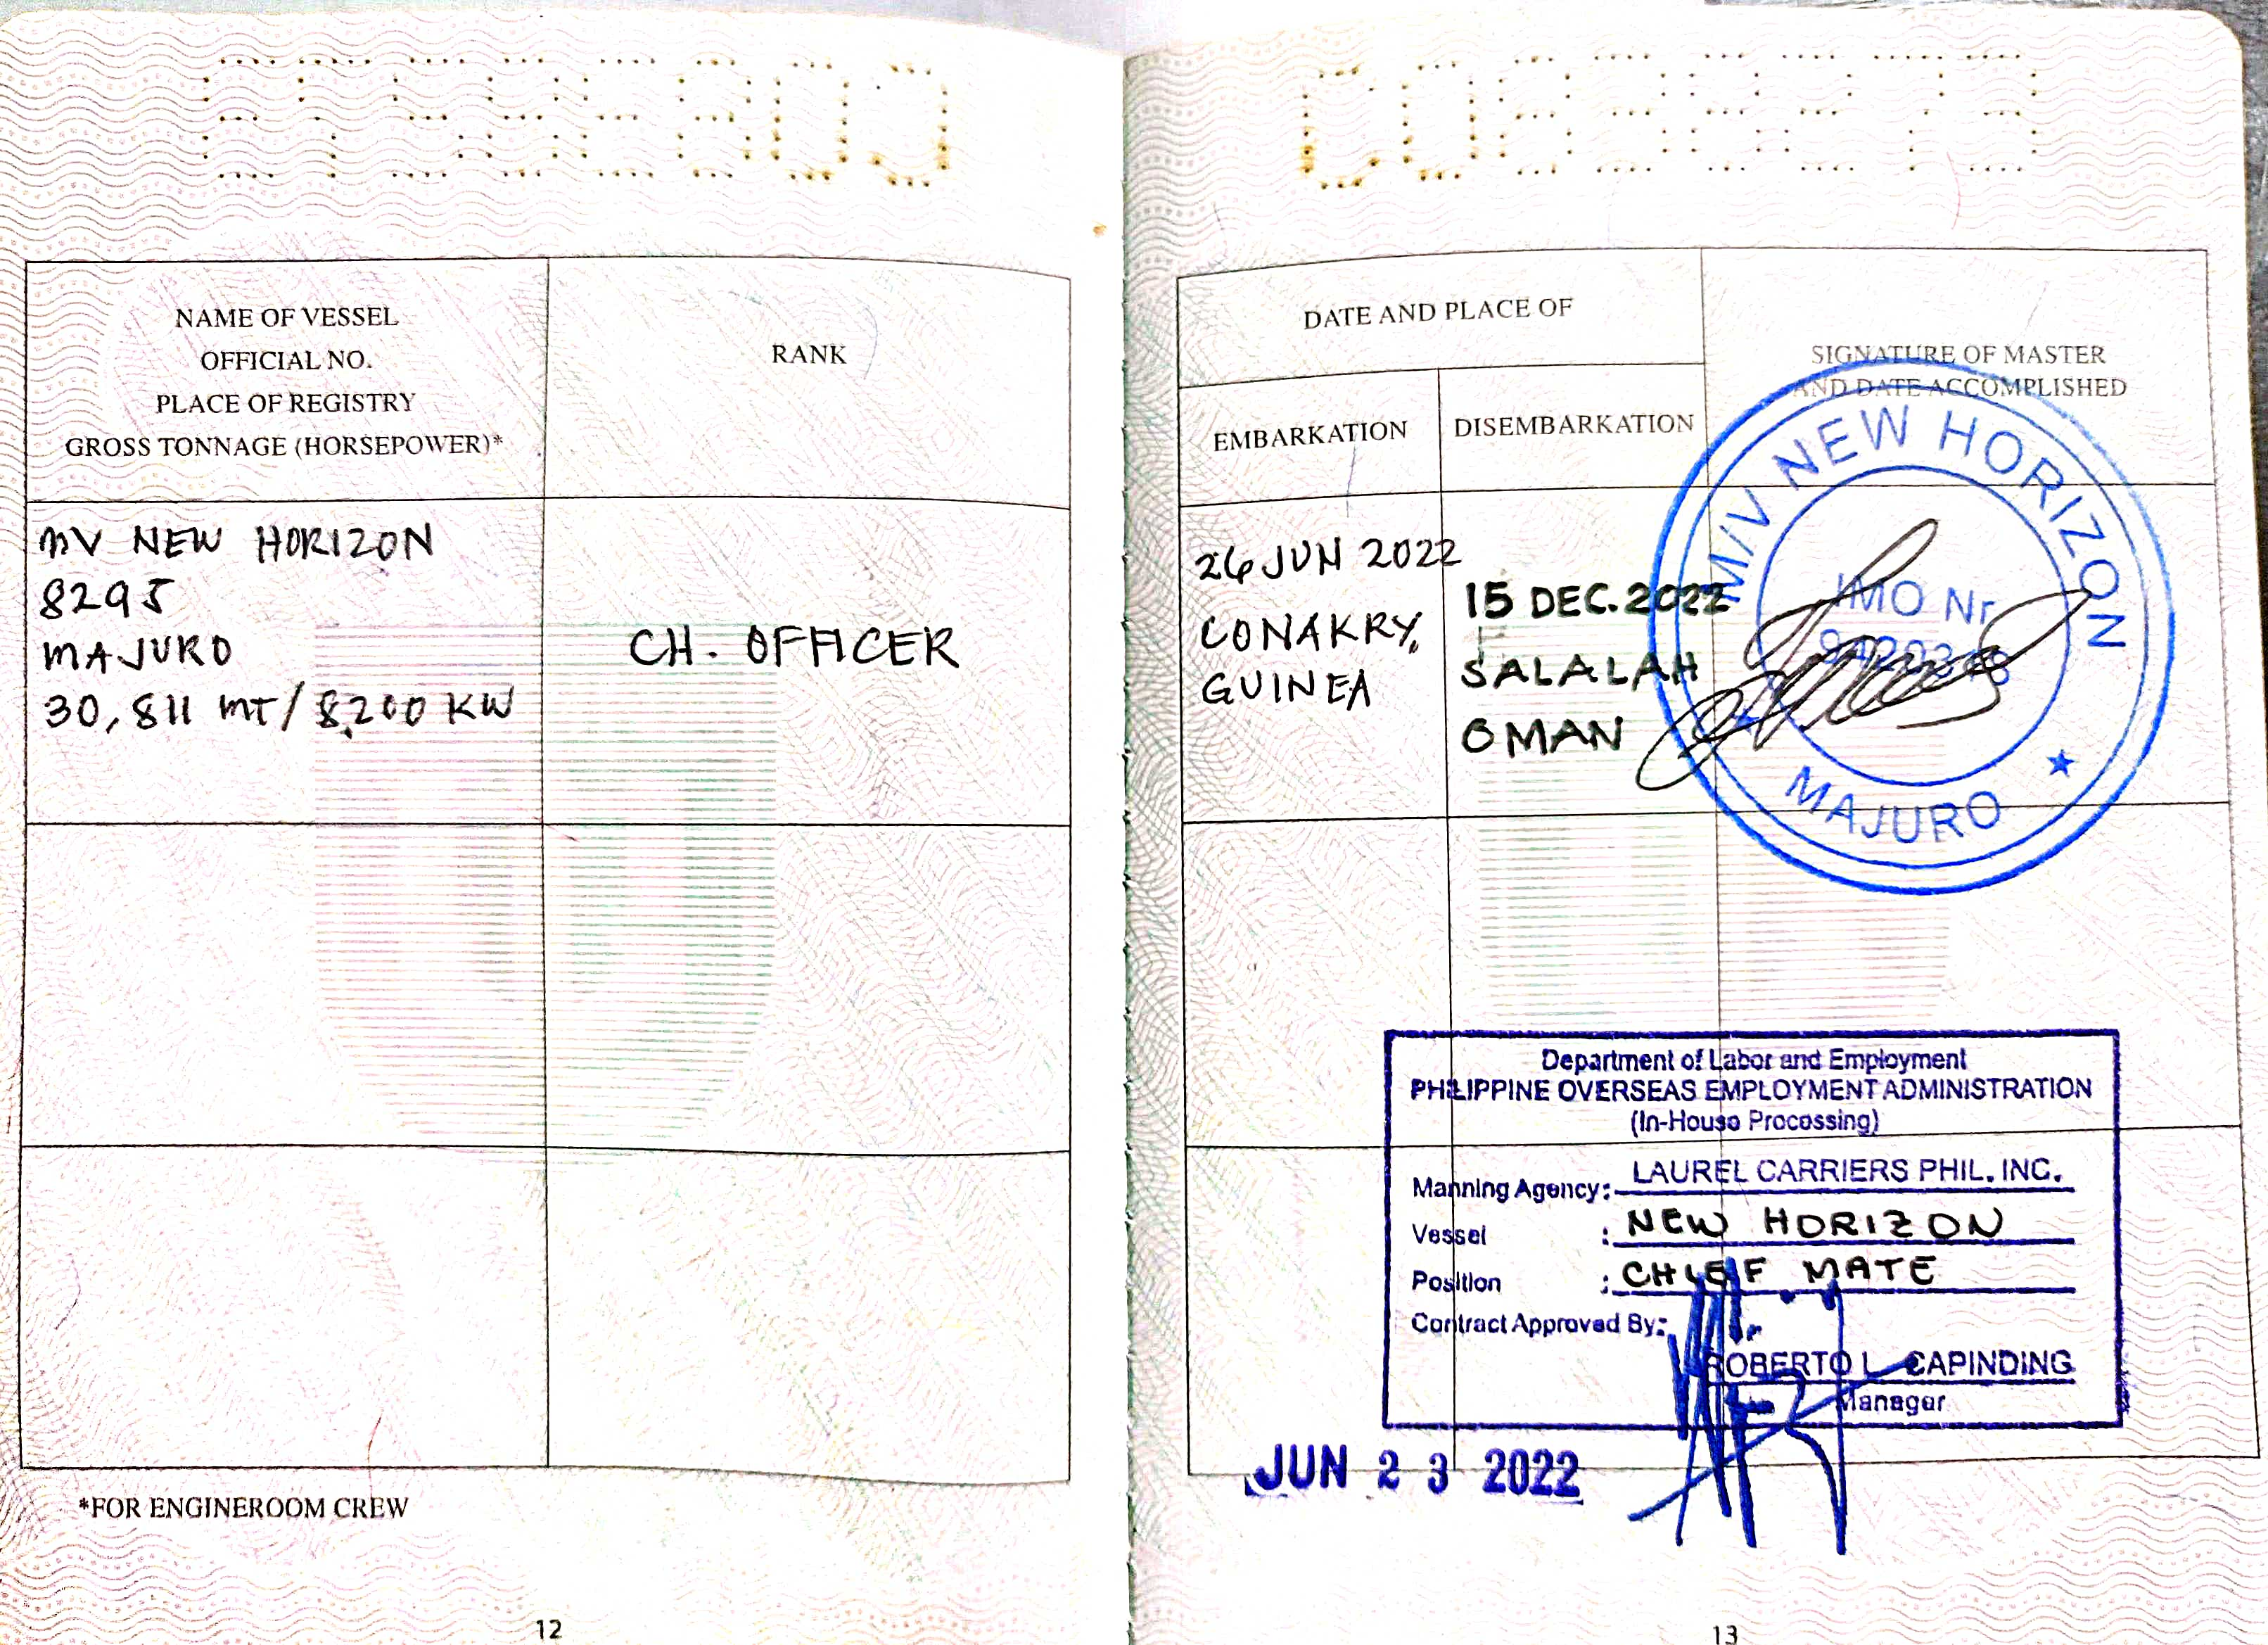 NAME OF VESSEL
OFFICIAL NO.
PLACE OF REGISTRY
GROSS TONNAGE (HORSEPOWER)*
RANK
MV NEW HORIZON
8295
MAJURO
30,811 MT/8200 KW
CH. OFFICER
*FOR ENGINEROOM CREW
12
DATE AND PLACE OF
EMBARKATION
DISEMBARKATION
SIGNATURE OF MASTER
AND DATE ACCOMPLISHED
26 JUN 2022
CONAKRY,
GUINEA
15 DEC. 2022
SALALAH
OMAN
M/V NEW HORIZON
IMO Nr
MAJURO
Department of Labor and Employment
PHILIPPINE OVERSEAS EMPLOYMENT ADMINISTRATION
(In-House Processing)
Manning Agency: LAUREL CARRIERS PHIL. INC.
Vessel : NEW HORIZON
Position : CHIEF MATE
Contract Approved By:
ROBERTO L. CAPINDING
Manager
JUN 23 2022
13